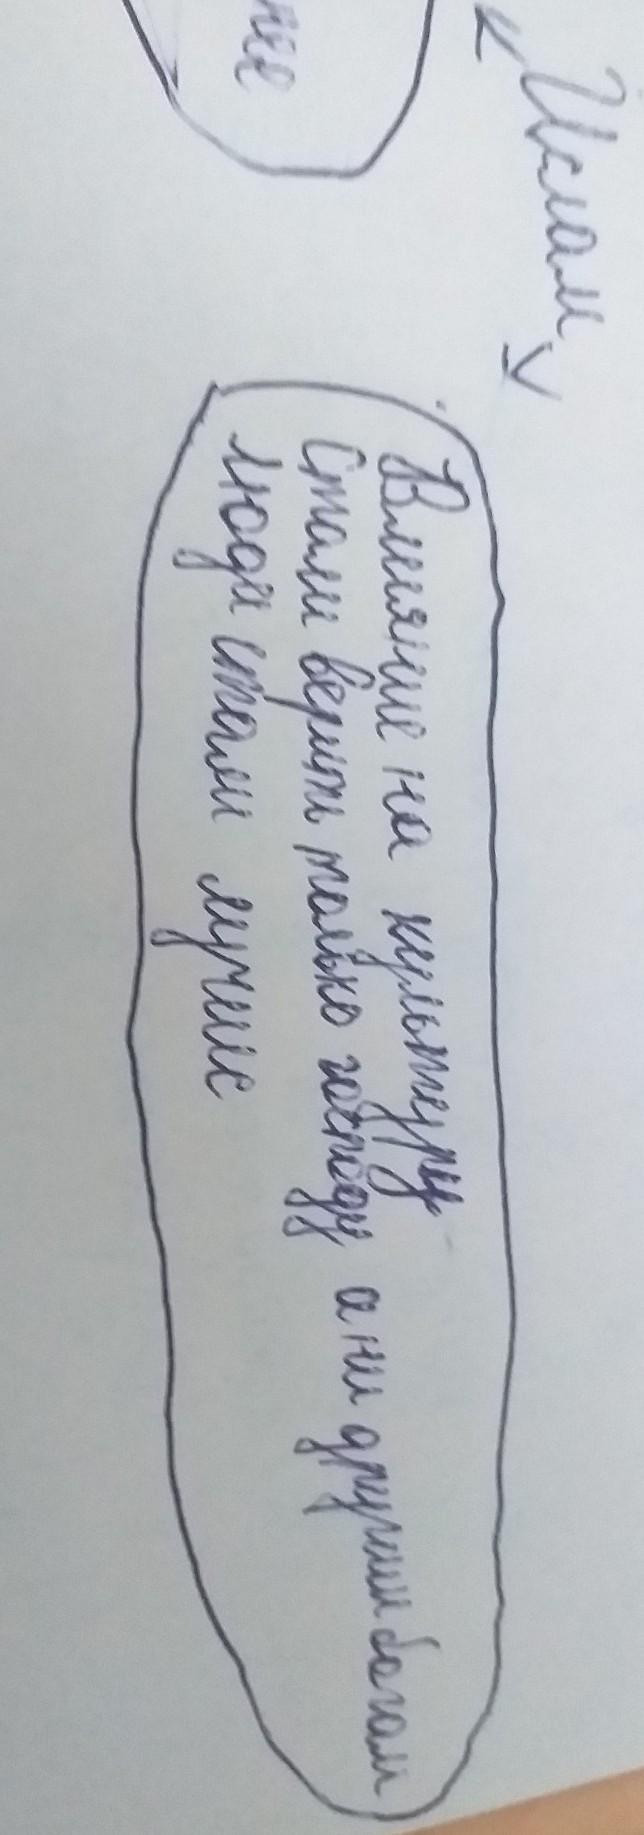 Ислам
ние
Влияние на культуру
Стали верить только господу а ни другим богам
люди стали лучше